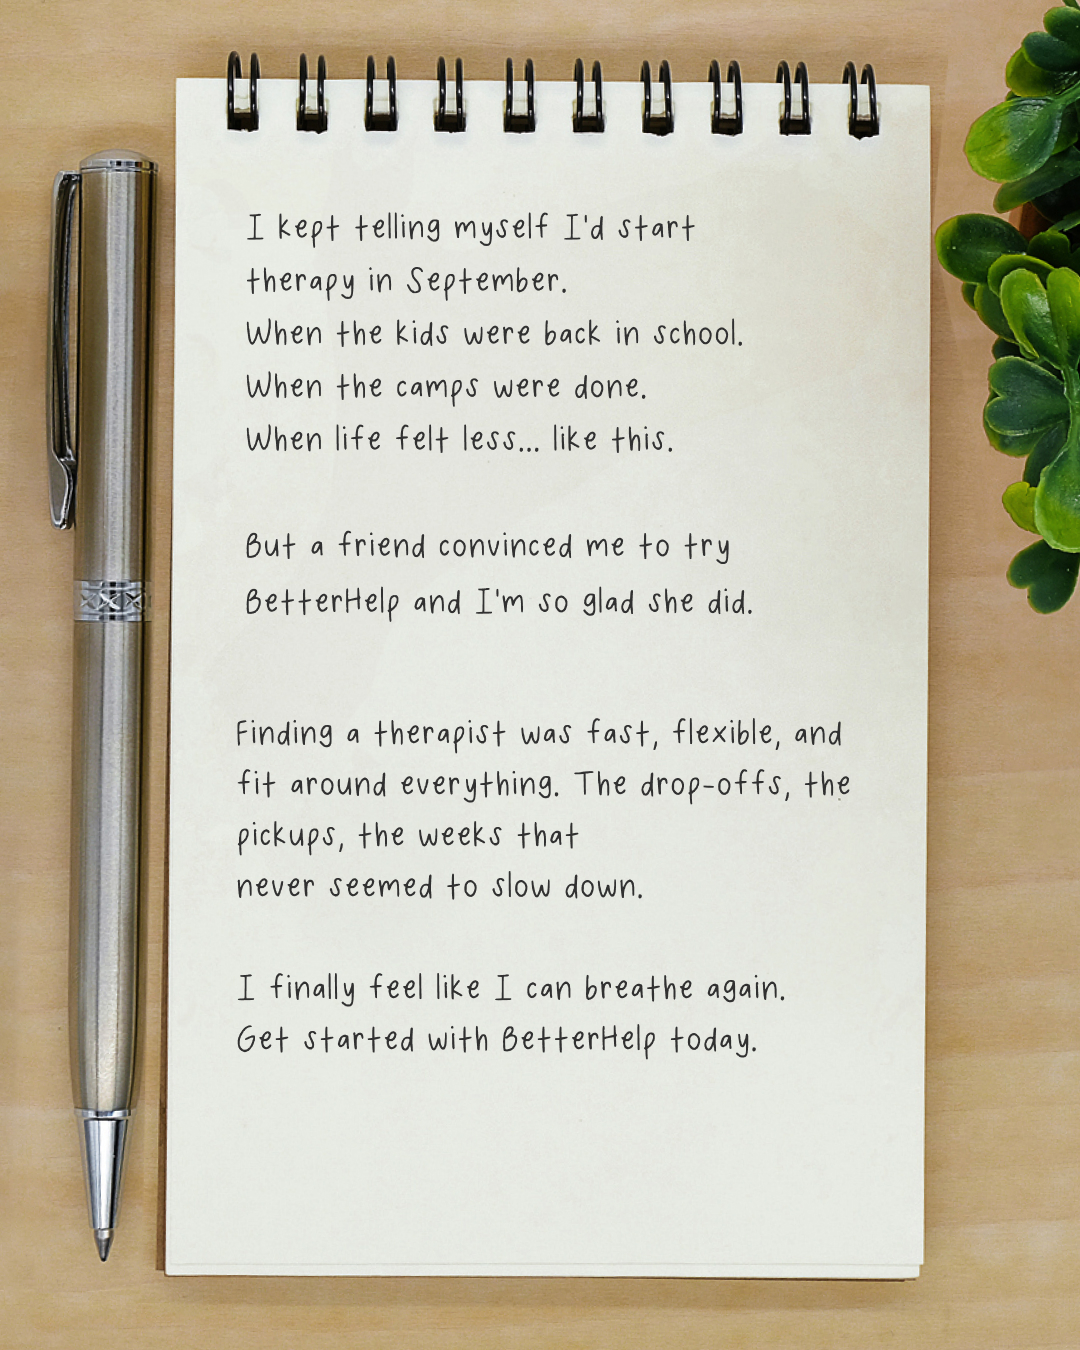 I kept telling myself I'd start
therapy in September.
When the kids were back in school.
When the camps were done.
When life felt less... like this.
But a friend convinced me to try
BetterHelp and I'm so glad she did.
Finding a therapist was fast, flexible, and
fit around everything. The drop-offs, the
pickups, the weeks that
never seemed to slow down.
I finally feel like I can breathe again.
Get started with BetterHelp today.